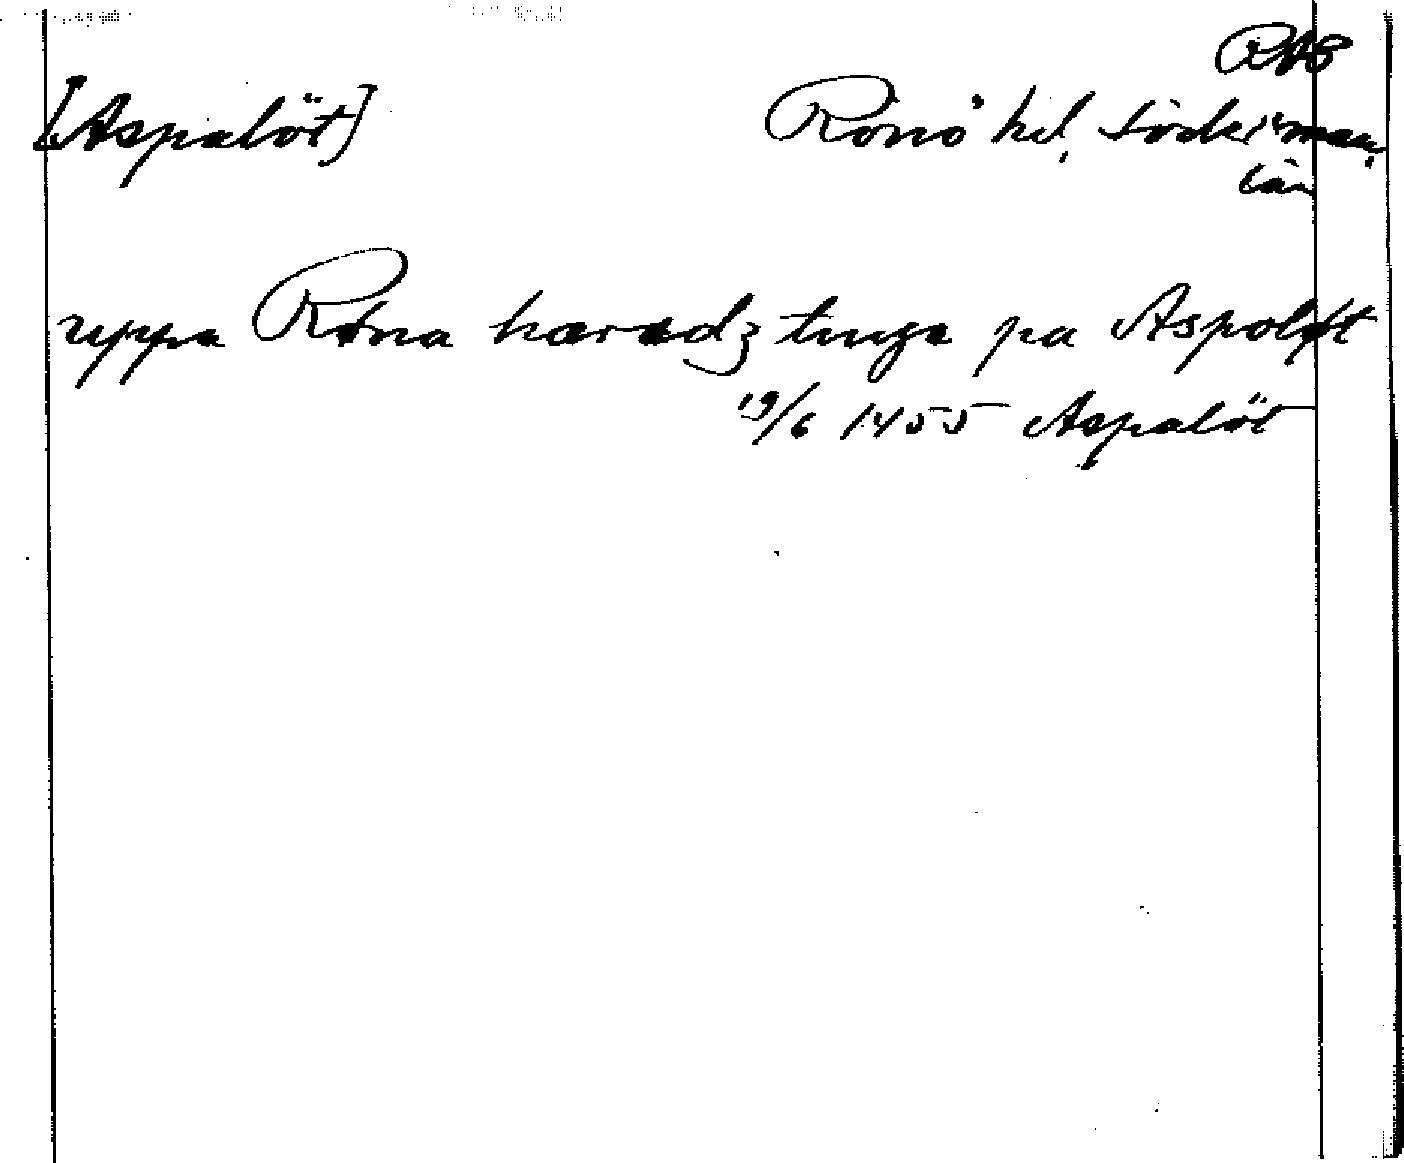 RAB
[Aspalöt] Rönö hd, Söderman.
län
uppa Røna hæradz tinge pa Aspoløt
19/6 1455 Aspalöt